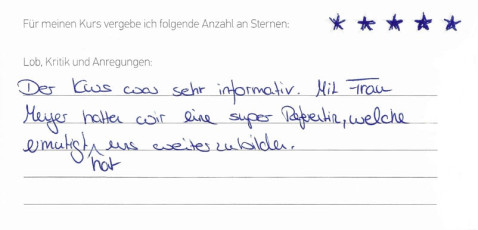 Für meinen Kurs vergebe ich folgende Anzahl an Sternen: ★ ★ ★ ★ ★
Lob, Kritik und Anregungen:
Der Kurs war sehr informativ. Mit Frau
Meyer hatten wir eine super Referentin, welche
ermutigt hat, uns weiterzubilden.